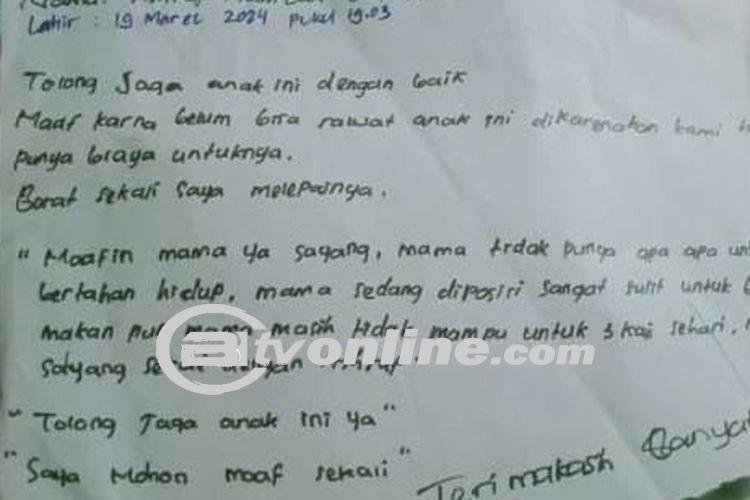 Lahir : 19 Maret 2024 pukul 19.03
Tolong Jaga anak ini dengan baik
Maaf karna belum bisa rawat anak ini dikarenakan kami
punya biaya untuknya.
Barat sekali saya melepasnya.
" Maafin mama ya sayang, mama tidak punya apa apa
bertahan hidup, mama sedang diposisi sangat sulit untuk
makan pun mama masih tidak mampu untuk 3 kai sehari,
atvonline.com
" Tolong Jaga anak ini ya "
" Saya Mohon maaf sekali "
Terimakasih Banyak